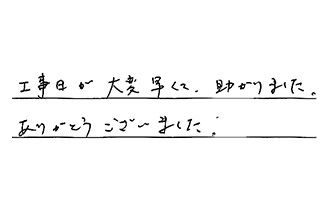 工事日が大変早くて、助かりました。
ありがとうございました。